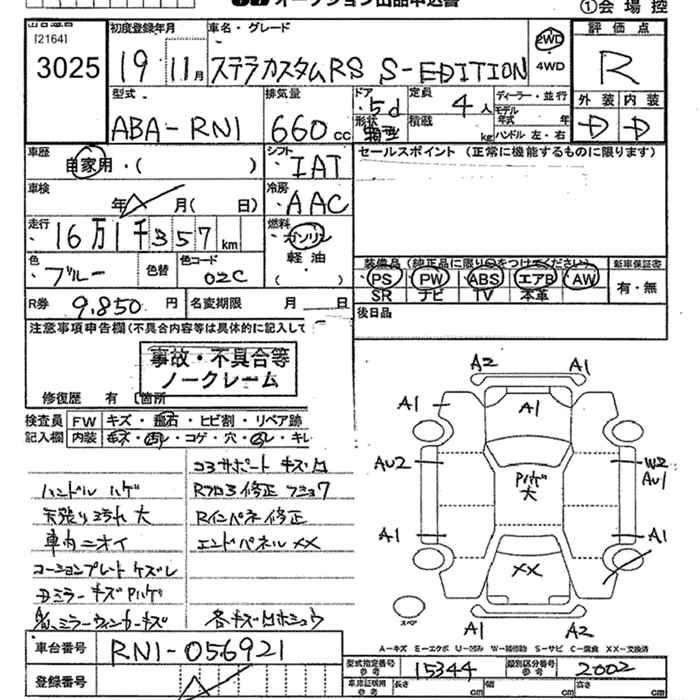 オークション出品申込書
①会場控
[2164]
3025
初度登録年月
19 11月
車名・グレード
ステラカスタムRS S-EDITION
2WD
4WD
評価点
R
外装 内装
D D
型式
ABA-RN1
排気量
660cc
ドア
5d
形状
定員
4人
積載
kg
ディーラー・並行
モデル年式 年
ハンドル 左・右
車歴
自家用・( )
シフト
IAT
セールスポイント (正常に機能するものに限ります)
車検
年 月( 日)
冷房
AAC
走行
16万1千357km
燃料
ガソリン
軽油
( )
色
ブルー
色替
色コード
02C
装備品(純正品に限り○をつけてください)
PS PW ABS エアB AW
SR ナビ TV 本革
新車保証書
有・無
R券 9,850円
名変期限 月 日
後日品
注意事項申告欄(不具合内容等は具体的に記入して
事故・不具合等
ノークレーム
修復歴 有 箇所
検査員
記入欄
FW キズ・飛石・ヒビ割・リペア跡
内装 キズ・汚レ・コゲ・穴・
コアサポート キズ
ハンドル ハゲ
天張り ヨゴレ 大
R修正
Rインパネ修正
車内ニオイ
エンドパネル XX
コーションプレート
ミラー キズ Pハゲ
ミラーウィンカーキズ
車台番号 RN1-056921
登録番号
A2 A1
A1 A1 A1
AU2 Pハゲ 大 W2 AU1
A1 A1
XX
スペア
A1 A2
A-キズ E-エクボ U-凹み W-補修跡 S-サビ C-腐食 XX-交換済
型式指定番号 参考 15344
類別区分番号 参考 2002
車庫証明用 参考 長さ cm 幅 cm 高さ cm